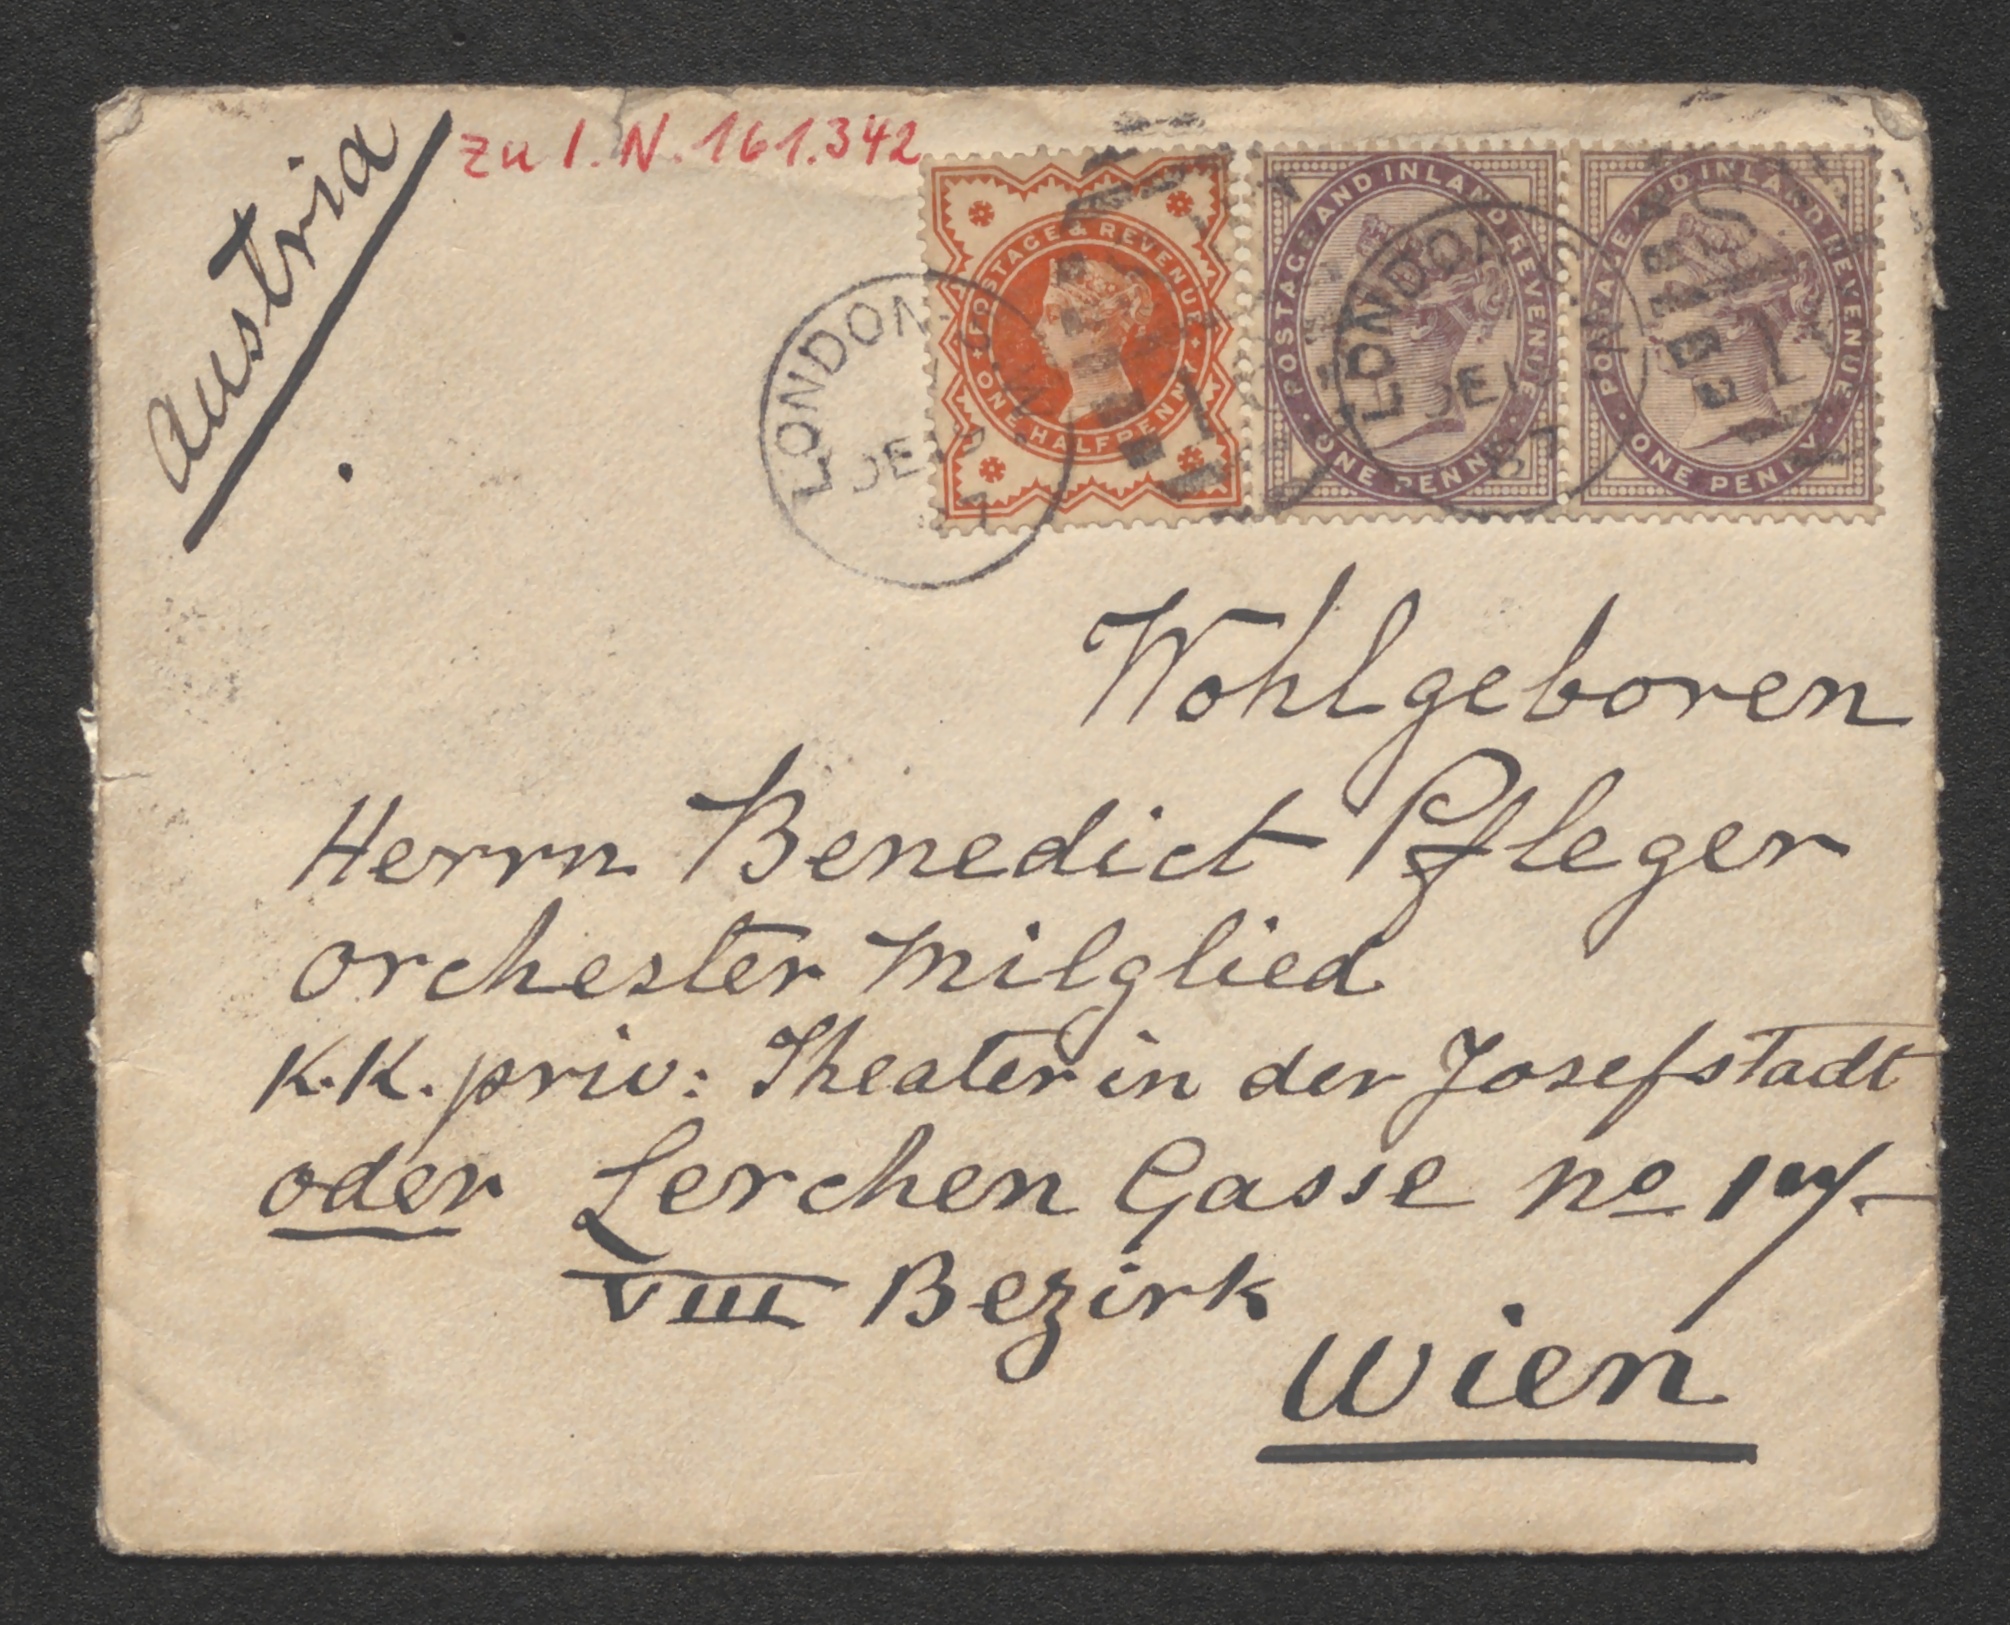 Austria
zu I. N. 161.342
POSTAGE & REVENUE
ONE HALFPENNY
POSTAGE AND INLAND REVENUE
ONE PENNY
POSTAGE AND INLAND REVENUE
ONE PENNY
LONDON
DE
LONDON
DE
87
Wohlgeboren
Herrn Benedict Pfleger
Orchester Mitglied
K.K. priv: Theater in der Josefstadt
oder Lerchen Gasse No
VIII Bezirk
Wien